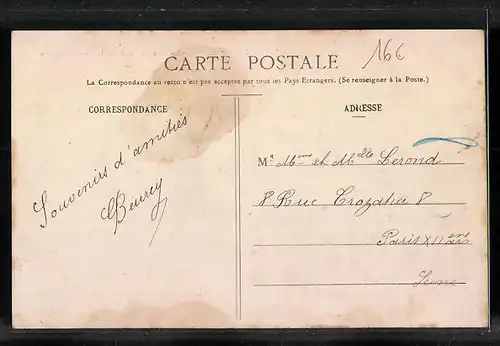 CARTE POSTALE
166
La Correspondance au recto n'est pas acceptée par tous les Pays Etrangers. (Se renseigner à la Poste.)
CORRESPONDANCE
Souvenirs d'amitiés
ADRESSE
M. Mme et Mlle Lerond
8 Rue Crozatier 8
Paris XII
Seine